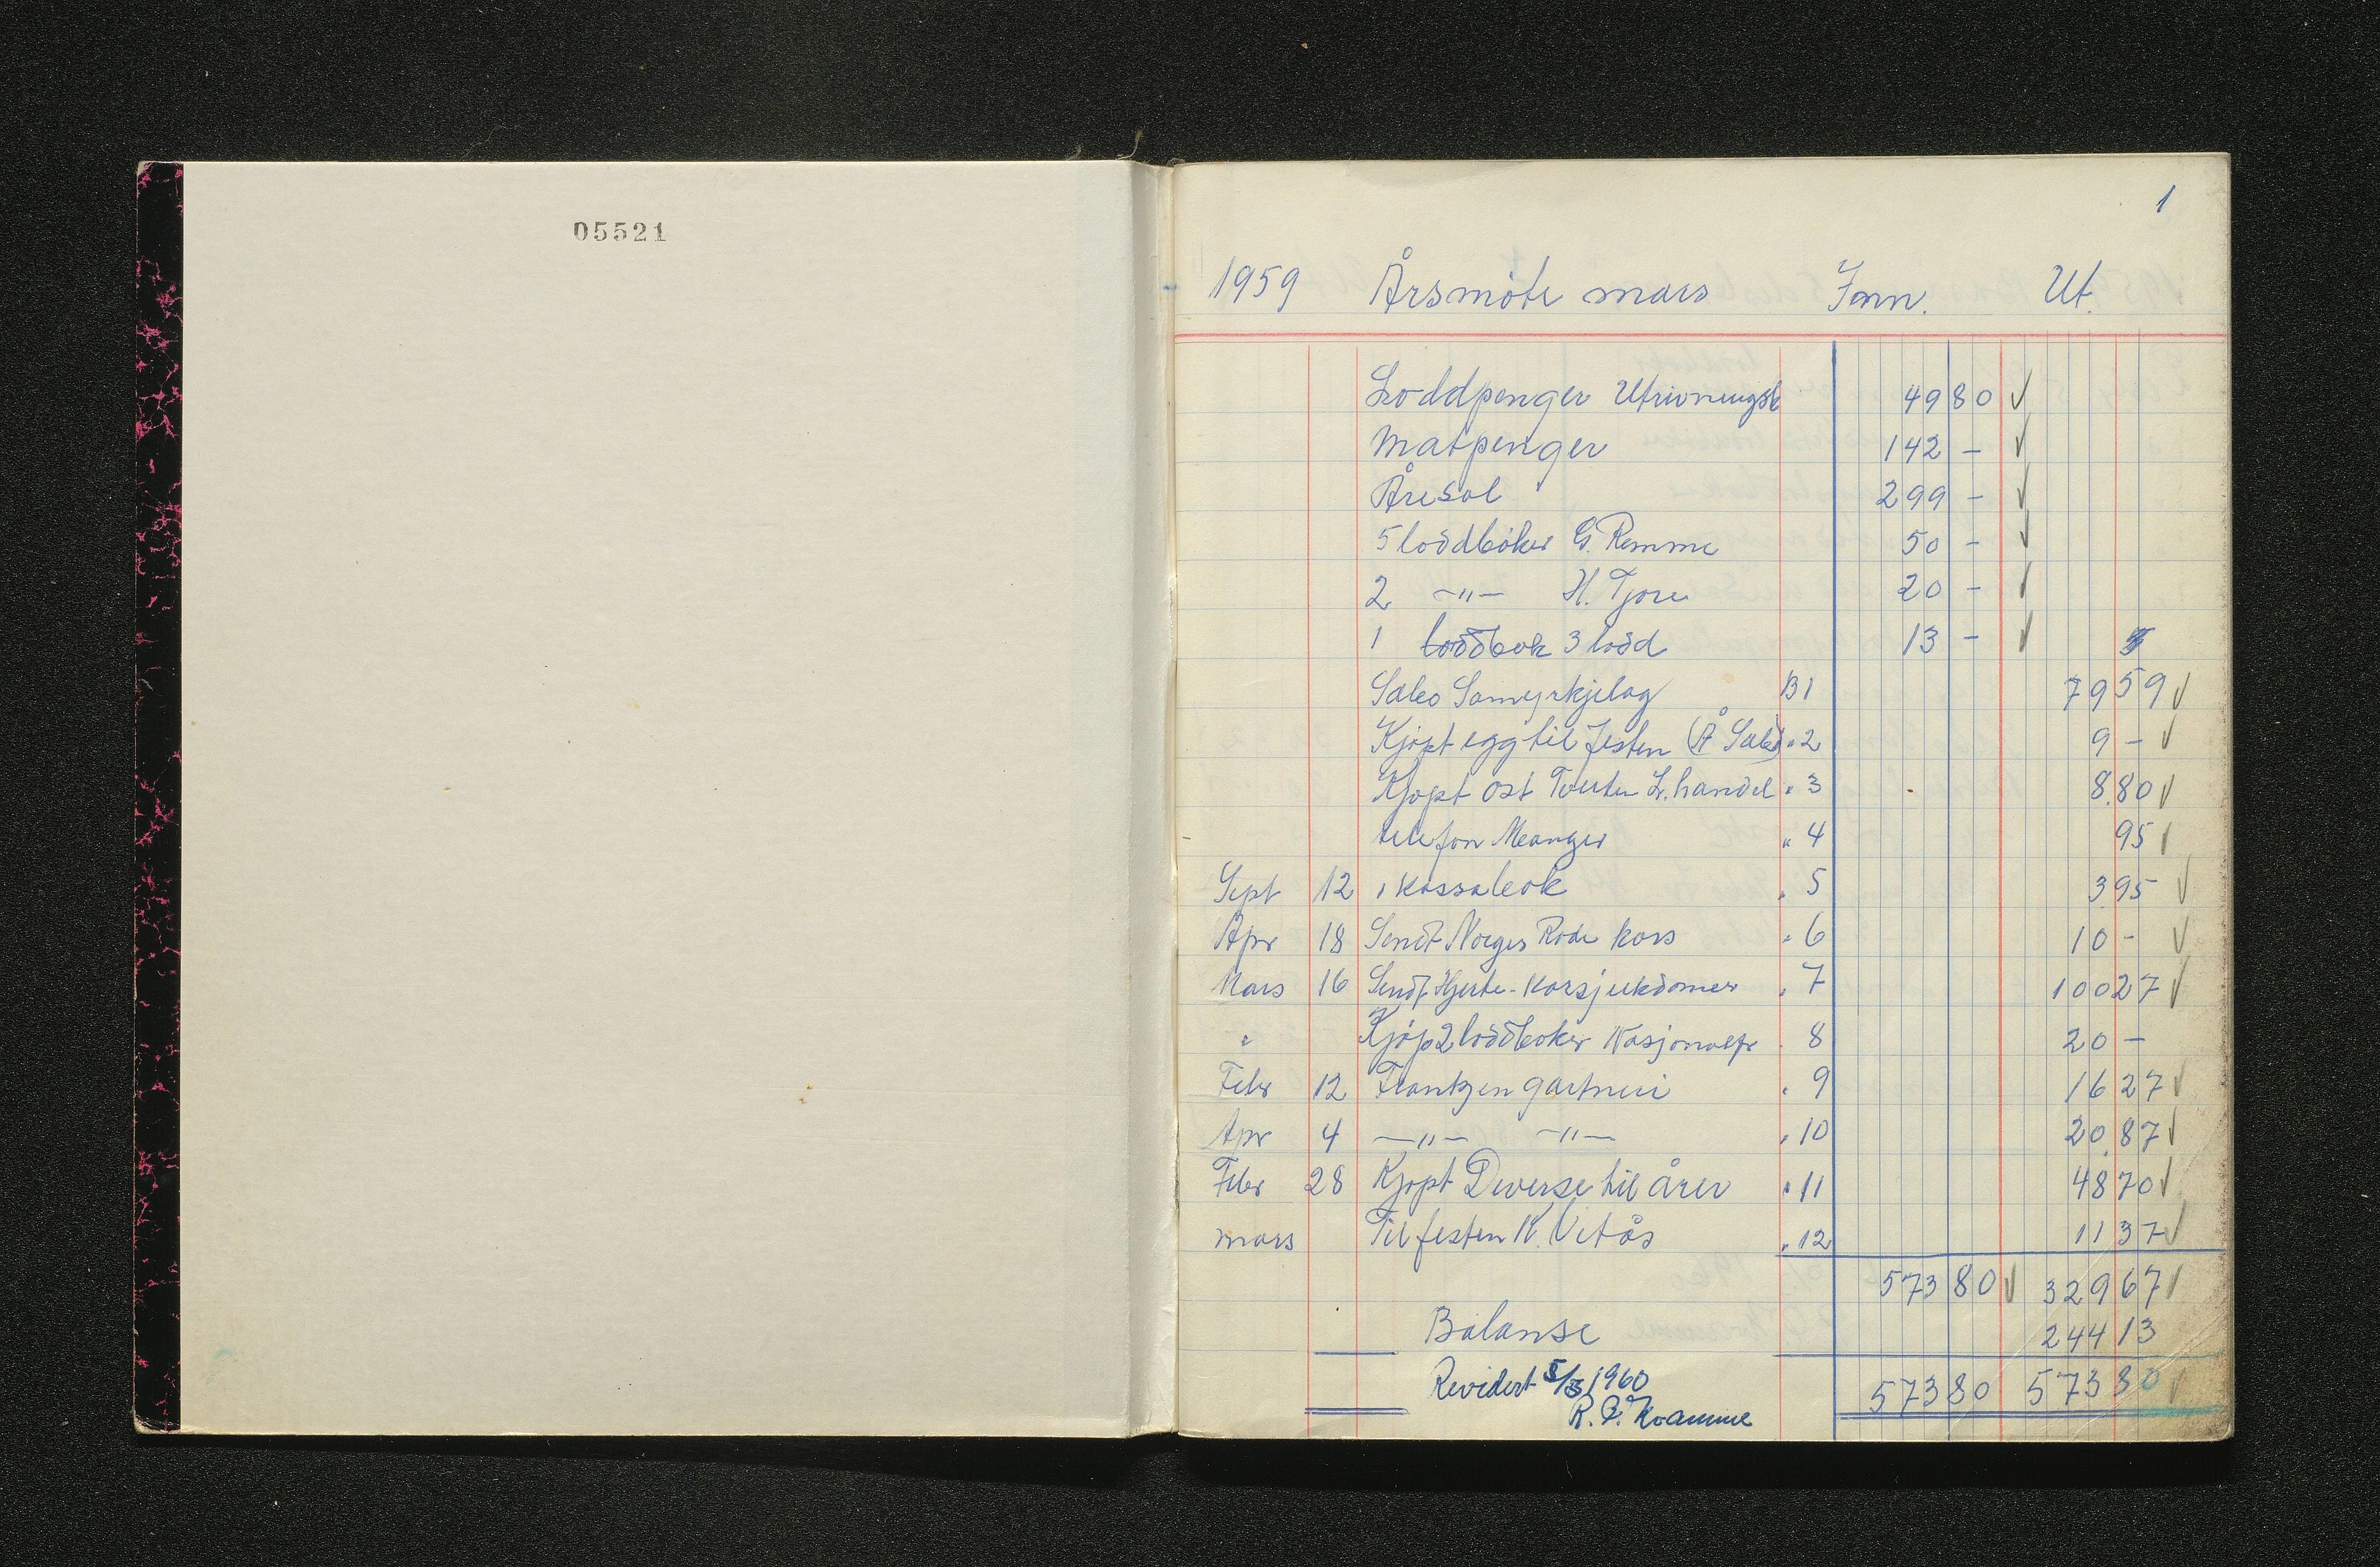 05521
1
1959 Årsmöte mars Inn. Ut.
Loddpenger Utrivningsb 49 80 ✓
Matpenger 142 - ✓
Åresal 299 - ✓
5 loddböker G. Remme 50 - ✓
2 -"- H. Tjore 20 - ✓
1 loddbok 3 lodd 13 - ✓
Sæbö Samyrkjelag B 1 79 59 ✓
Kjöpt egg til festen (Å Sæbö) " 2 9 - ✓
Kjöpt ost L. handel " 3 8.80 ✓
telefon Manger " 4 95 ✓
Sept 12 1 kassabok " 5 3 95 ✓
Apr 18 Sendt Norges Röde kors " 6 10 - ✓
Mars 16 Sendt Hjerte-karsjukdomer " 7 100 27 ✓
" Kjöp 2 loddböker Nasjonalfr " 8 20 -
Febr 12 Frantzen gartneri " 9 16 27 ✓
Apr 4 -"- -"- " 10 20.87 ✓
Febr 28 Kjöpt Diverse til årer " 11 48 70 ✓
mars Til festen K. Vetås " 12 11 37 ✓
573 80 ✓ 329 67 ✓
Balanse 244 13
Revidert 5/3 1960 573 80 573 80 ✓
R. Kvamme